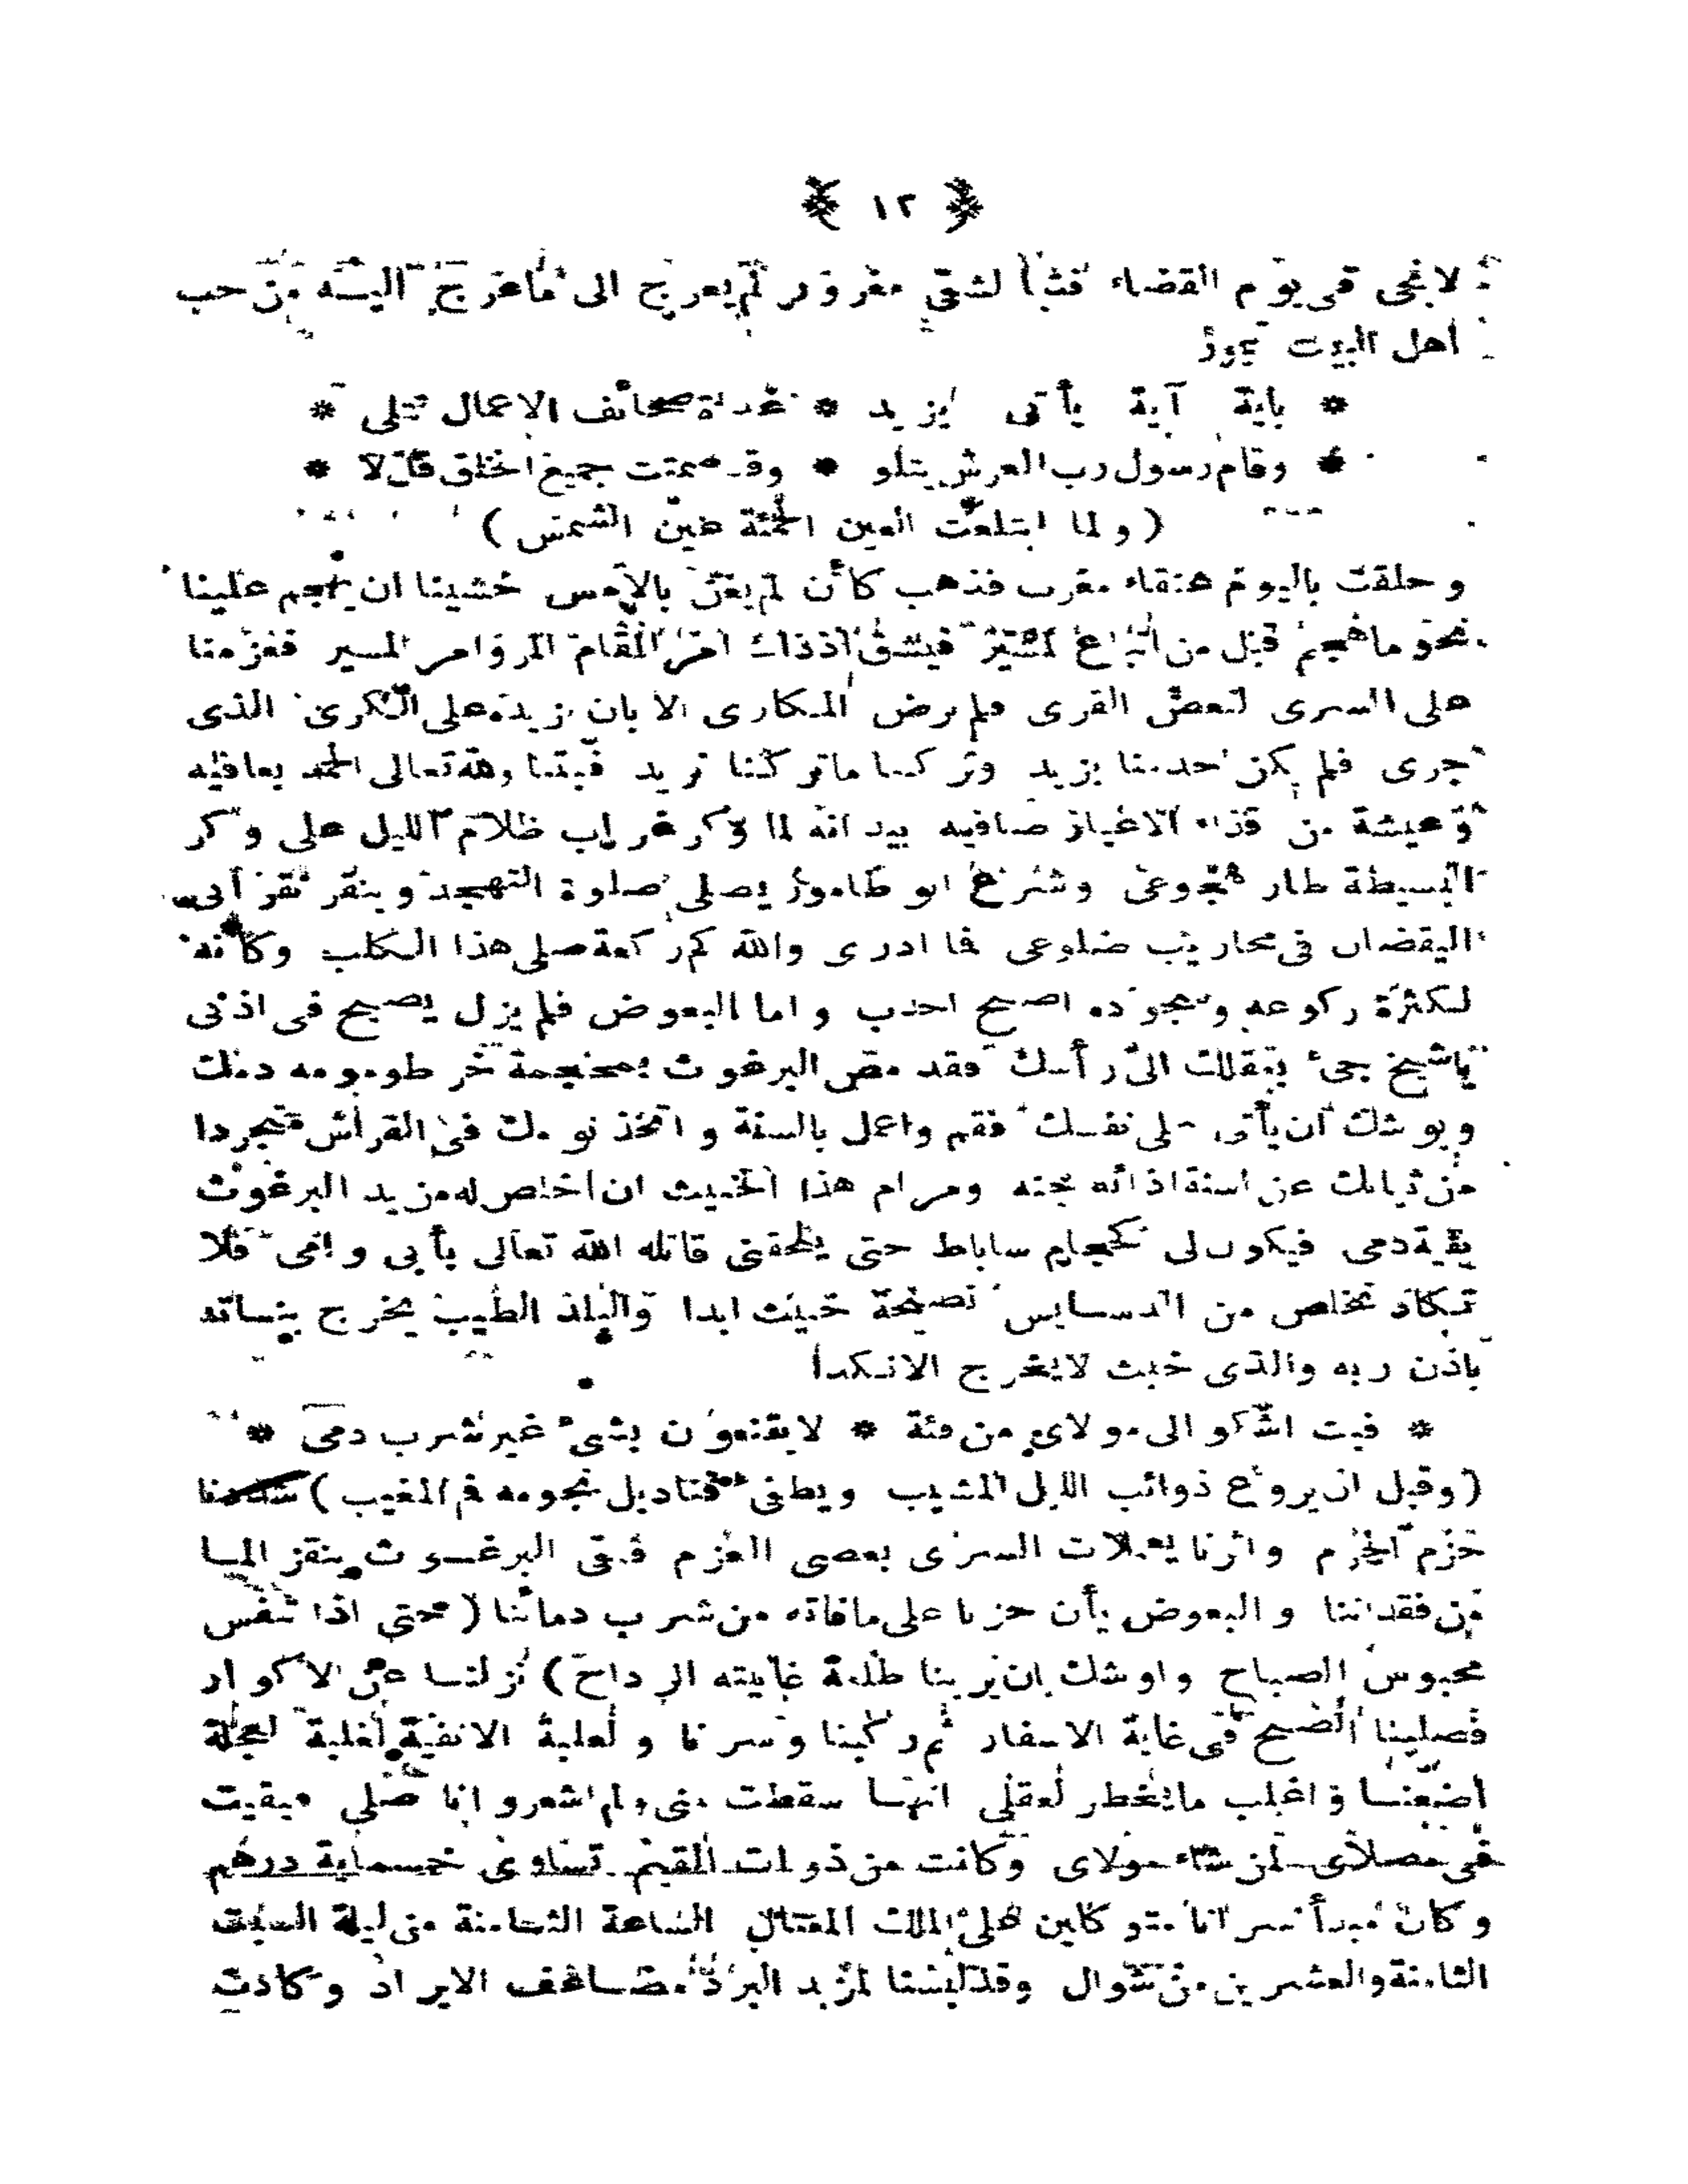 ﴿ ١٢ ﴾
لانجى فى يوم القضاء فتبا لشقى مغرور لم يعرج الى ما عرج اليه من حب
اهل البيت
* باية آية يأتى يزيد * غداة صحائف الاعمال تتلى *
* وقام رسول رب العرش يتلو * وقد صمتت جميع الخلق قل لا *
( ولما ابتلعت العين الحمئة عين الشمس )
وحلقت باليوم عنقاء مغرب فذهب كأن لم يغن بالامس خشينا ان يهجم علينا
نحو ما هجم قبل من فيشق اذذاك امر المقام المر وامر المسير فعزمنا
على السرى لبعض القرى فلم يرض المكارى الا بان نزيده على الكرى الذى
جرى فلم يكن احد منا يريد وتركنا ما تركنا نريد فبتنا ولله تعالى الحمد بعافيه
وعيشة من قذاء الاغيار صافيه بيد انه لما وكر غراب ظلام الليل على وكر
البسيطة طار هجوعى وشرع ابو طامور يصلى صلوة التهجد وينقر نقر أبى
اليقضان فى محاريب ضلوعى فما ادرى والله كم ركعة صلى هذا الكلب وكأنه
لكثرة ركوعه وسجوده اصبح احدب واما البعوض فلم يزل يصيح فى اذنى
ياشيخ جئ بثقلك الى رأسك فقد مص البرغوث بمحجمة خرطومه دمك
ويوشك ان يأتى على نفسك فقم واعمل بالسنة واتخذ نومك فى الفراش متجردا
من ثيابك عن اسنة اذائه جنه ومرام هذا الخبيث ان اخلص له من يد البرغوث
بقية دمى فيكون لى كحجام ساباط حتى يلحقنى قاتله الله تعالى بأبى وامى فلا
تكاد تخلص من الدسايس نصيحة خبيث ابدا والبلد الطيب يخرج نباته
باذن ربه والذى خبث لايخرج الانكدا
* فبت اشكو الى مولاى من فئة * لايقنعون بشئ غير شرب دمى *
( وقبل ان يروع ذوائب الليل المشيب ويطفئ قناديل نجومه فم المغيب ) شددنا
حزم الحزم واثرنا يعملات السرى بعصى العزم فبقى البرغوث ينقز الما
من فقداننا والبعوض يأن حزنا على مافاته من شرب دمائنا ( حتى اذا تنفس
محبوس الصباح واوشك ان يرينا طلعة غانيته الرداح ) نزلنا عن الاكوار
فصلينا الصبح فى غاية الاسفار ثم ركبنا وسرنا ولعلبة الانفية لغلبة العجلة
اضعنا واغلب مايخطر لعقلى انها سقطت منى ولم اشعر وانا صلى فبقيت
فى مصلاى لمن شاء مولاى وكانت من ذوات القيم تساوى خمسماية درهم
وكان مبدأ سرانا متوكلين على الملك المتعال الساعة الثامنة من ليلة السبت
الثامنة والعشرين من شوال وقد لبسنا لمزيد البرد مضاعف الابراد وكادت